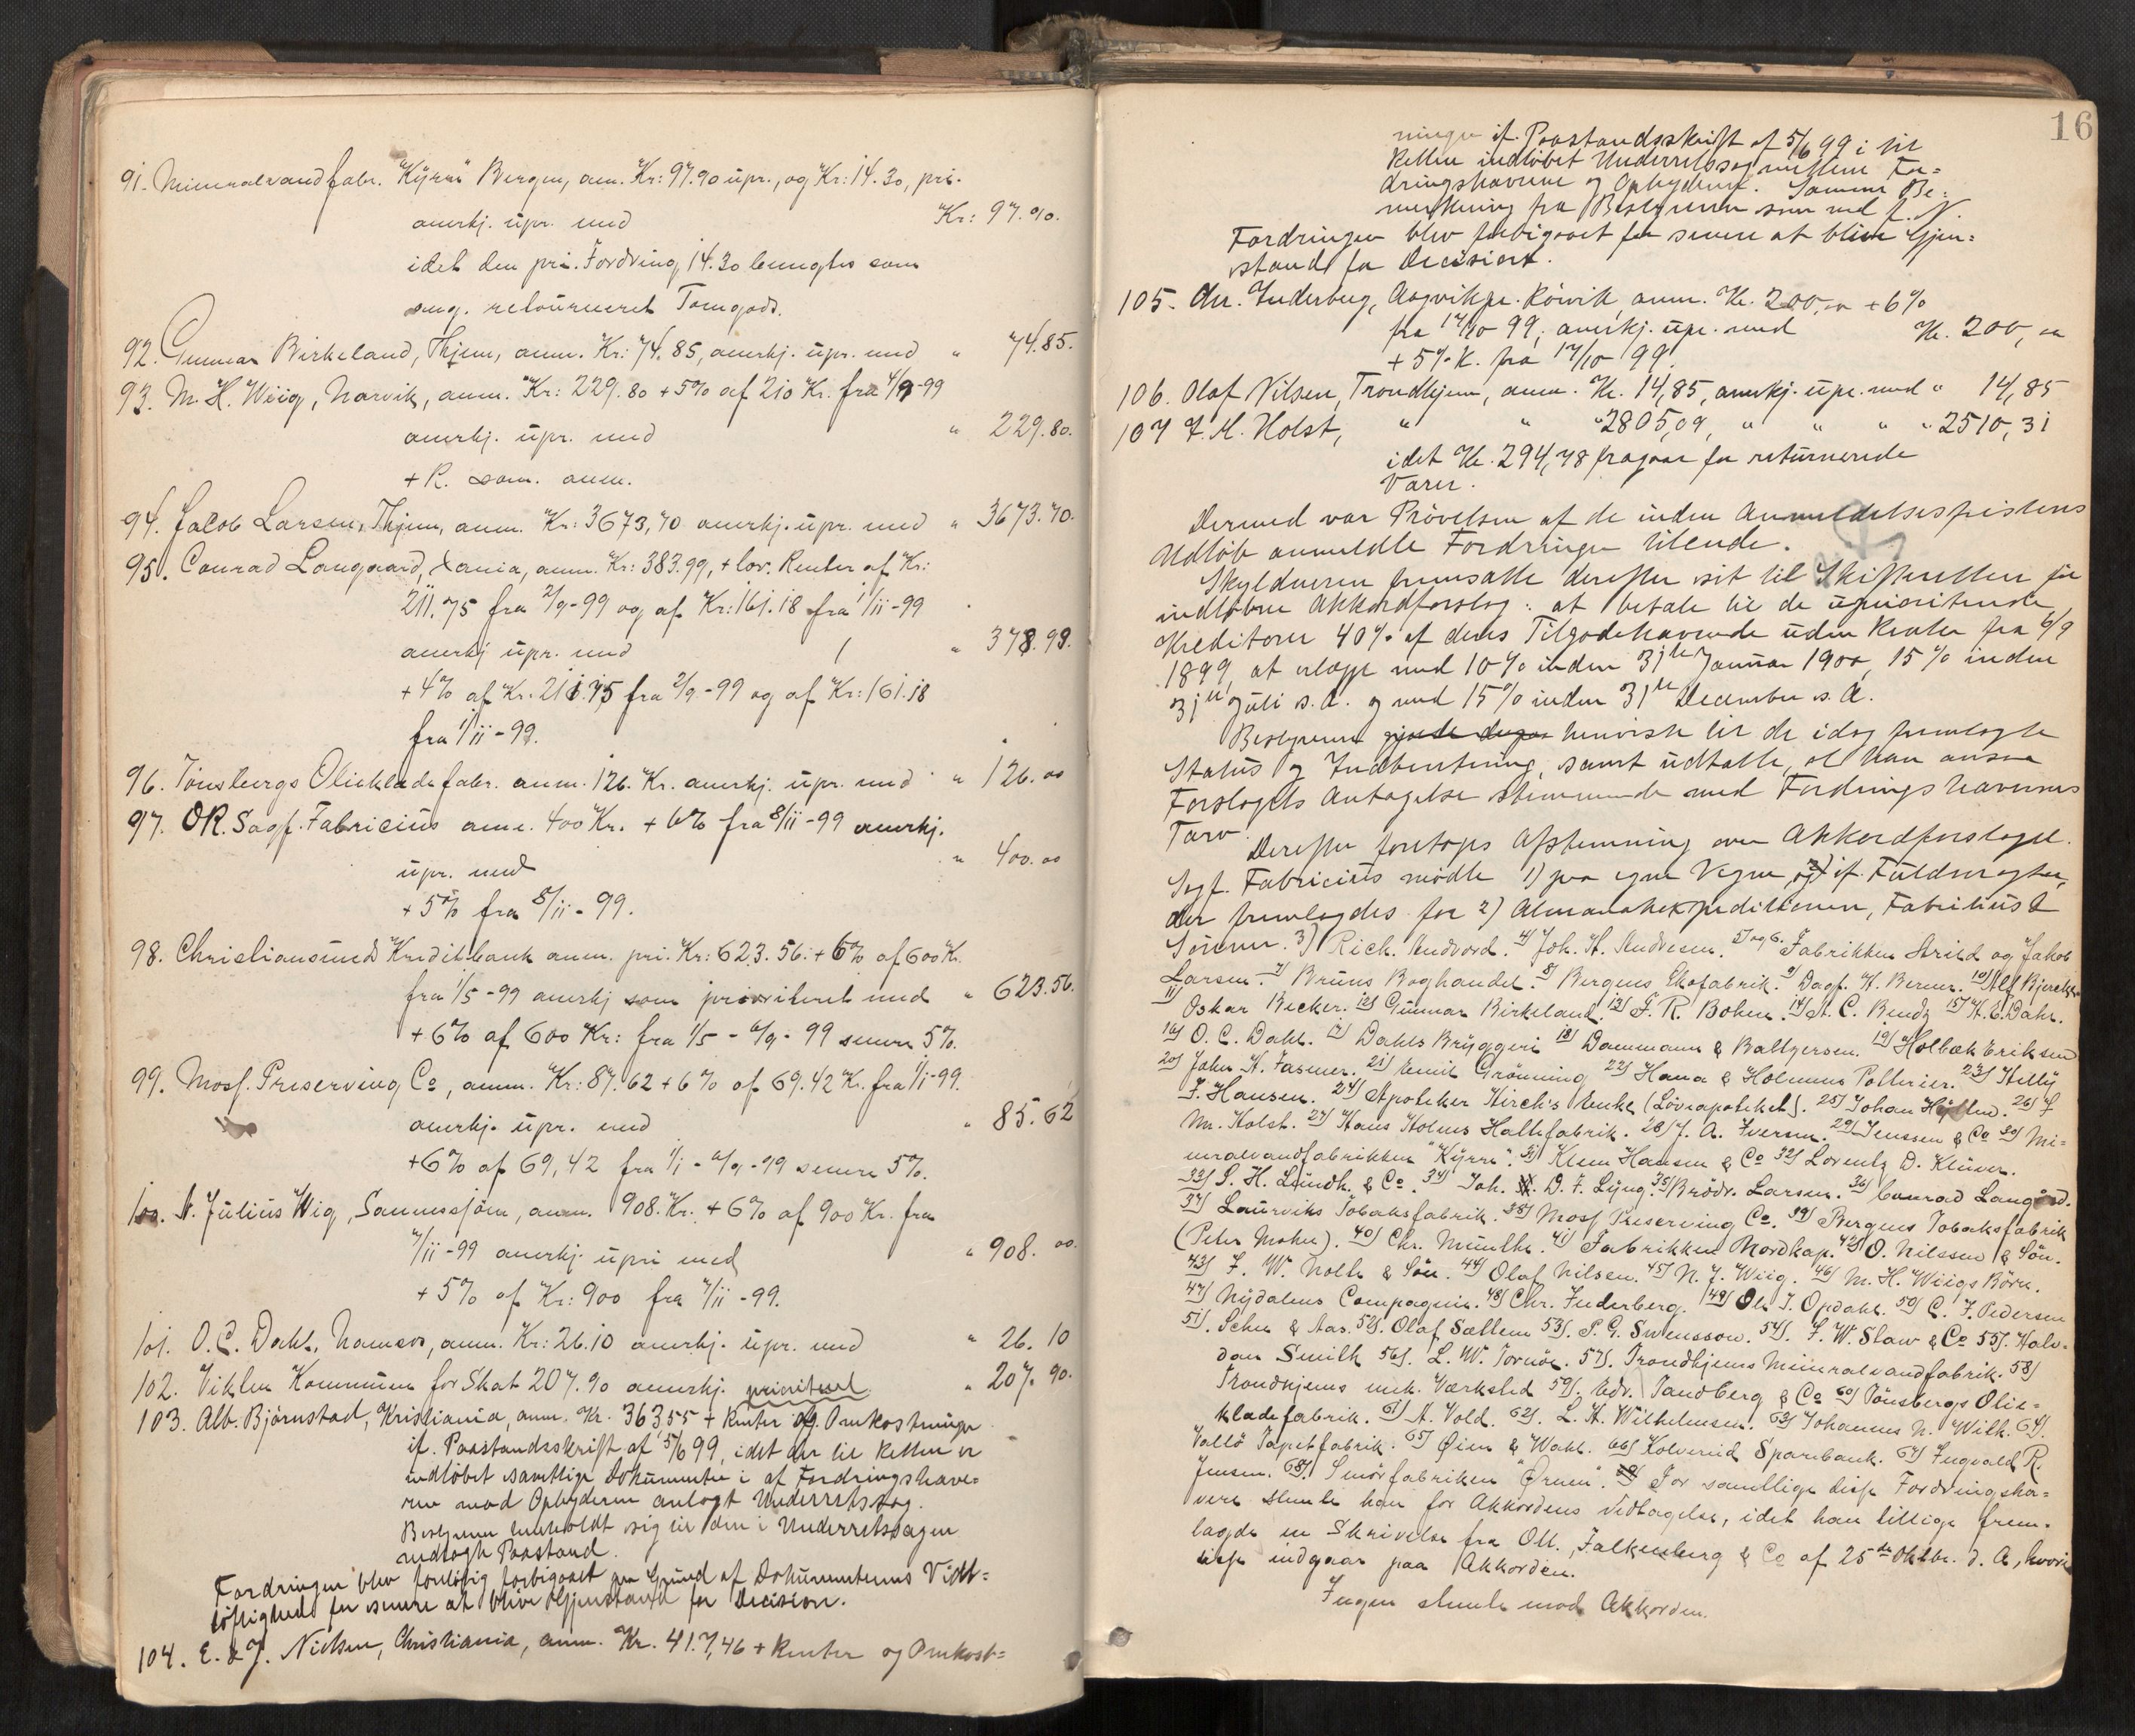 91. Mineralvandfabr. "Kyrre" Bergen, anm. Kr: 97.90 upr., og Kr: 14.30, pri.
anerkj. upr. med Kr: 97.90.
idet den pri. Fordring 14.30 benegtes som
ang. retourneret Tomgods.
92. Gunnar Birkeland, Thjem, anm. Kr: 74.85, anerkj. upr. med " 74.85.
93. M. H. Wiig, Narvik, anm. Kr: 229.80 + 5% af 210 Kr. fra 4/9-99
anerkj. upr. med " 229.80.
+ R. som anm.
94. Jacob Larsen, Thjem, anm. Kr: 3673,70 anerkj. upr. med " 3673.70.
95. Conrad Langaard, Xania, anm. Kr: 383.99, + lov. Renter af Kr:
211.75 fra 2/9-99 og af Kr: 161.18 fra 1/11-99
anerkj upr. med " 378.99.
+ 4% af Kr. 211.75 fra 2/9-99 og af Kr: 161.18
fra 1/11-99.
96. Tønsbergs Oliekladefabr. anm. 126. Kr. anerkj. upr. med " 126.00
97. OR. Sagf. Fabricius anm. 400 Kr. + 6% fra 8/11-99 anerkj.
upr. med " 400.00
+ 5% fra 8/11-99.
98. Christiansunds Kreditbank anm. pri. Kr: 623.56: + 6% af 600 Kr.
fra 1/5-99 anerkj som prioriteret med " 623.56.
+ 6% af 600 Kr: fra 1/5 - 6/9-99 senere 5%.
99. Moss. Preserving Co, anm. Kr: 87.62 + 6% af 69.42 Kr. fra 1/1-99.
anerkj. upr. med " 85.62
+ 6% af 69,42 fra 1/1 - 6/9-99 senere 5%.
100. N. Julius Wig, Sannessjøen, anm. 908. Kr. + 6% af 900 Kr. fra
7/11-99 anerkj. upri med " 908.00.
+ 5% af Kr: 900 fra 7/11-99.
101. O. C. Dahl, Namsos, anm. Kr: 26.10 anerkj. upr. med " 26.10
102. Vikten Kommune for Skat 207.90 anerkj. prioriteret " 207.90.
103. Alb. Bjørnstad, Kristiania, anm. Kr. 363,55 + Renter og Omkostninger
if. Paastandsskrift af 5/6 99, idet der til Retten er
indløbet samtlige Dokumenter i af Fordringshave=
ren mod Ophyderen anlagt Underretssag.
Bestyreren henholdt sig til den i Underretssagen
nedlagte Paastand.
Fordringen blev foreløbig forbigaaet paa Grund af Dokumenternes Vidt=
løftighed for senere at blive Gjenstand for Decision.
104. E. & J. Nielsen, Christiania, anm. Kr. 417,46 + Renter og Omkost=
16
ninger if. Paastandsskrift af 5/6 99 i til
Retten indløbet Underretssag mellem For=
dringshaverne og Ophyderen. Samme Be=
merkning fra Bestyreren som ved f. N.
Fordringen blev forbigaaet for senere at blive Gjen=
stand for Decision.
105. Chr. Inderberg, Aagvik pr. Rørvik, anm. Kr. 200,00 + 6%
fra 17/10 99, anerkj. upr. med Kr. 200,00
+ 5% R. fra 17/10 99.
106. Olaf Nilsen, Trondhjem, anm. Kr. 14,85, anerkj. upr. med " 14,85
107 F. M. Holst, " " " 2805,09, " " " " 2510,31
idet Kr. 294,78 fragaar for returnerede
Varer.
Dermed var Prøvelsen af de inden Anmeldelsesfristens
Udløb anmeldte Fordringer tilende.
Skyldneren fremsatte derefter sit til Skifteretten før
indløbne Akkordforslag: at betale til de uprioriterede
Kreditorer 40% af deres Tilgodehavende uden Renter fra 6/9
1899, at erlægge med 10% inden 31te Januar 1900, 15% inden
31te Juli s. A. og med 15% inden 31te December s. A.
Bestyreren henviste til de idag fremlagte
Status og Indberetning, samt udtalte, at han ansaa
Forslagets Antagelse stemmende med Fordringshavernes
Tarv.
Derefter foretoges Afstemning over Akkordforslaget.
Sagf. Fabricius mødte 1) paa egne Vegne, og if. Fuldmagter,
der fremlagdes for 2) Almanakekspeditionen, Fabritius &
Sønner. 3) Rich. Andvord. 4) Joh. H. Andresen. 5) og 6. Fabrikken Arild og Jakob
Larsen. 7) Bruns Boghandel. 8) Bergens Skofabrik. 9) Dagf. H. Berner. 10) Alf Bjercke.
11) Oskar Becker. 12) Gunnar Birkeland. 13) F. R. Bohm. 14) A. C. Bendz 15) H. E. Dahr.
16) O. C. Dahl. 17) Dahls Bryggeri 18) Dammann & Baltzersen. 19) Holbæk Eriksen
20) John H. Fasmer. 21) Emil Grønning 22) Hana & Holmens Potterier. 23) Helly
J. Hansen. 24) Apoteker Hirch's Enke (Løveapoteket). 25) Johan Hyllen. 26) F
M. Holst. 27) Hans Holms Hattefabrik. 28) J. A. Iversen. 29) Jenssen & Co 30) Mi=
neralvandfabrikken "Kyrre". 31) Klem Hansen & Co 32) Lorentz D. Klüver.
33) S. H. Lundh & Co. 34) Joh. D. F. Ljung. 35) Brødr. Larsen. 36) Conrad Langård.
37) Laurviks Tobaksfabrik. 38) Moss Preserving Co. 39) Bergens Tobaksfabrik
(Peter Mohn). 40) Chr. Munthe. 41) Fabrikken Nordkap. 42) O. Nilssen & Søn.
43) F. W. Nolte & Søn. 44) Olaf Nilsen. 45) N. J. Wiig. 46) M. H. Wiigs Børn.
47) Nydalens Compagnie. 48) Chr. Inderberg. 49) Ole T. Opdahl. 50) C. F. Pedersen
51). Schee & Aas. 52). Olaf Sættem 53). P. G. Svensson. 54). F. W. Slaw & Co 55). Halv=
dan Smith 56). L. W. Tornøe. 57). Trondhjems Mineralvandfabrik. 58)
Trondhjems mek. Værksted 59). Edv. Tandberg & Co 60) Tønsbergs Olie=
kladefabrik. 61) A. Vold. 62). L. H. Wilhelmsen. 63) Johannes N. Wilh. 64).
Vallø Tapetfabrik. 65) Øien & Wahl. 66) Kolvereid Sparebank. 67) Ingvald R.
Jensen. 68) Smørfabriken "Ørnen". For samtlige disse Fordringsha=
vere stemte han for Akkordens Vedtagelse, idet han tillige frem=
lagde en Skrivelse fra Ott. Falkenberg & Co af 25de Oktbr. d. A, hvori
disse indgaar paa Akkorden.
Ingen stemte mod Akkorden.